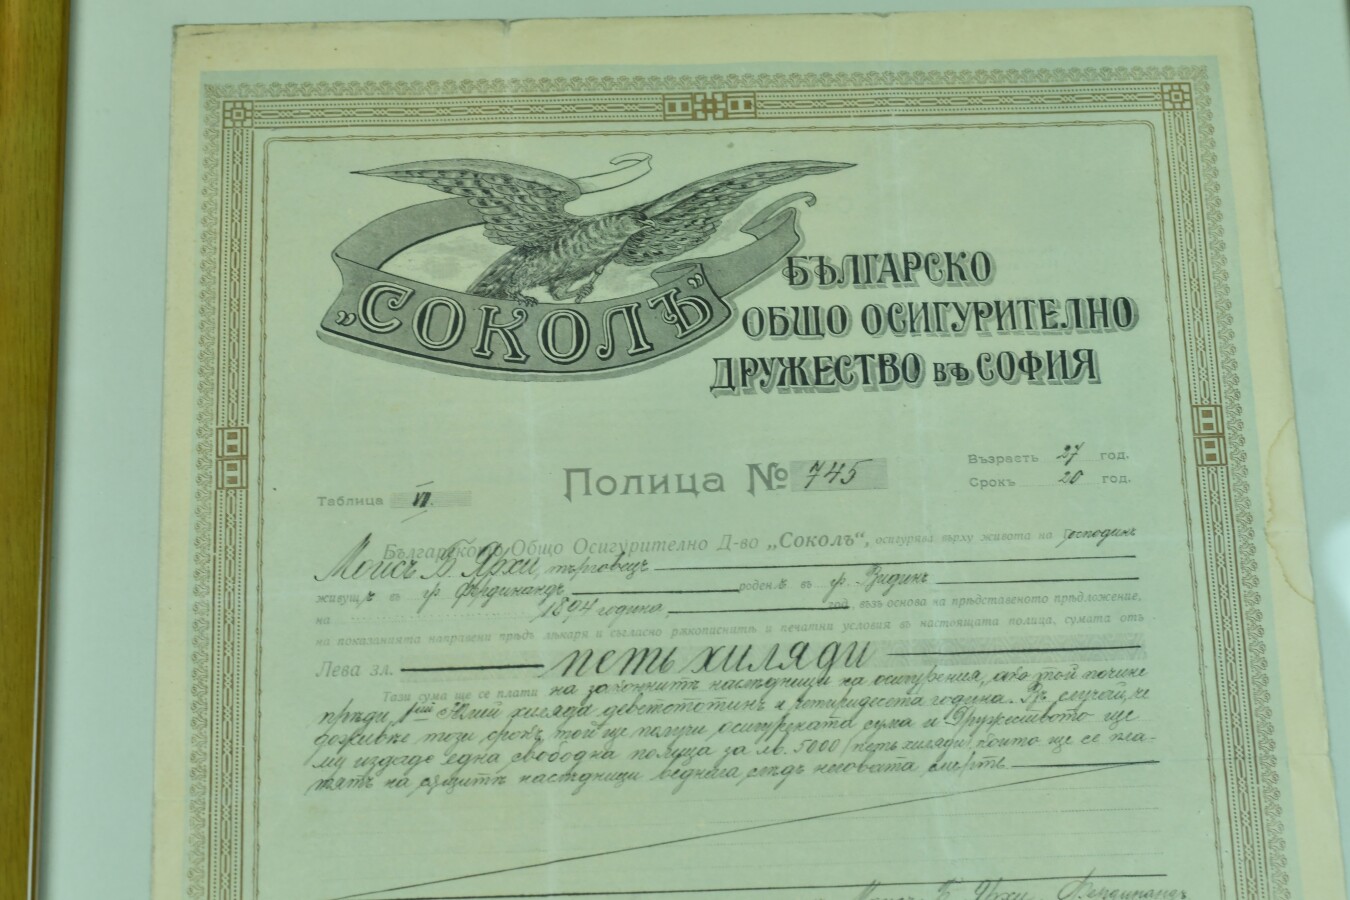 „СОКОЛЪ"
БЪЛГАРСКО
ОБЩО ОСИГУРИТЕЛНО
ДРУЖЕСТВО въ СОФИЯ
Възрасть 27 год.
Срокъ 20 год.
Таблица VI.
Полица № 745
Българското Общо Осигурително Д-во „Соколъ", осигурява върху живота на Господинъ
Моисъ Б. Ярхи, търговецъ
живущъ въ гр. Фердинандъ роденъ въ гр. Видинъ
на 1894 година, год., възъ основа на прѣдставеното прѣдложение,
на показанията направени прѣдъ лѣкаря и съгласно рѫкописнитѣ и печатни условия въ настоящата полица, сумата отъ
Лева зл. петь хиляди
Тази сума ще се плати на законнитѣ наслѣдници на осигурения, ако той почине
прѣди 1ий Юлий хиляда деветстотинъ и четиридесета година. Въ случай, че
доживѣе този срокъ, той ще получи осигурената сума и Дружеството ще
му издаде една свободна полица за лв. 5000 (петь хиляди) които ще се пла-
тятъ на сѫщитѣ наслѣдници веднага слѣдъ неговата смърть
Моисъ Б. Ярхи, Фердинандъ